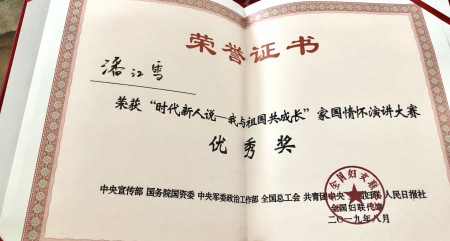 荣誉证书
潘江雪
荣获“时代新人说—我与祖国共成长”家国情怀演讲大赛
优秀奖
中央宣传部 国务院国资委 中央军委政治工作部 全国总工会 共青团中央 全国妇联 人民日报社
全国妇联代章
二〇一九年八月